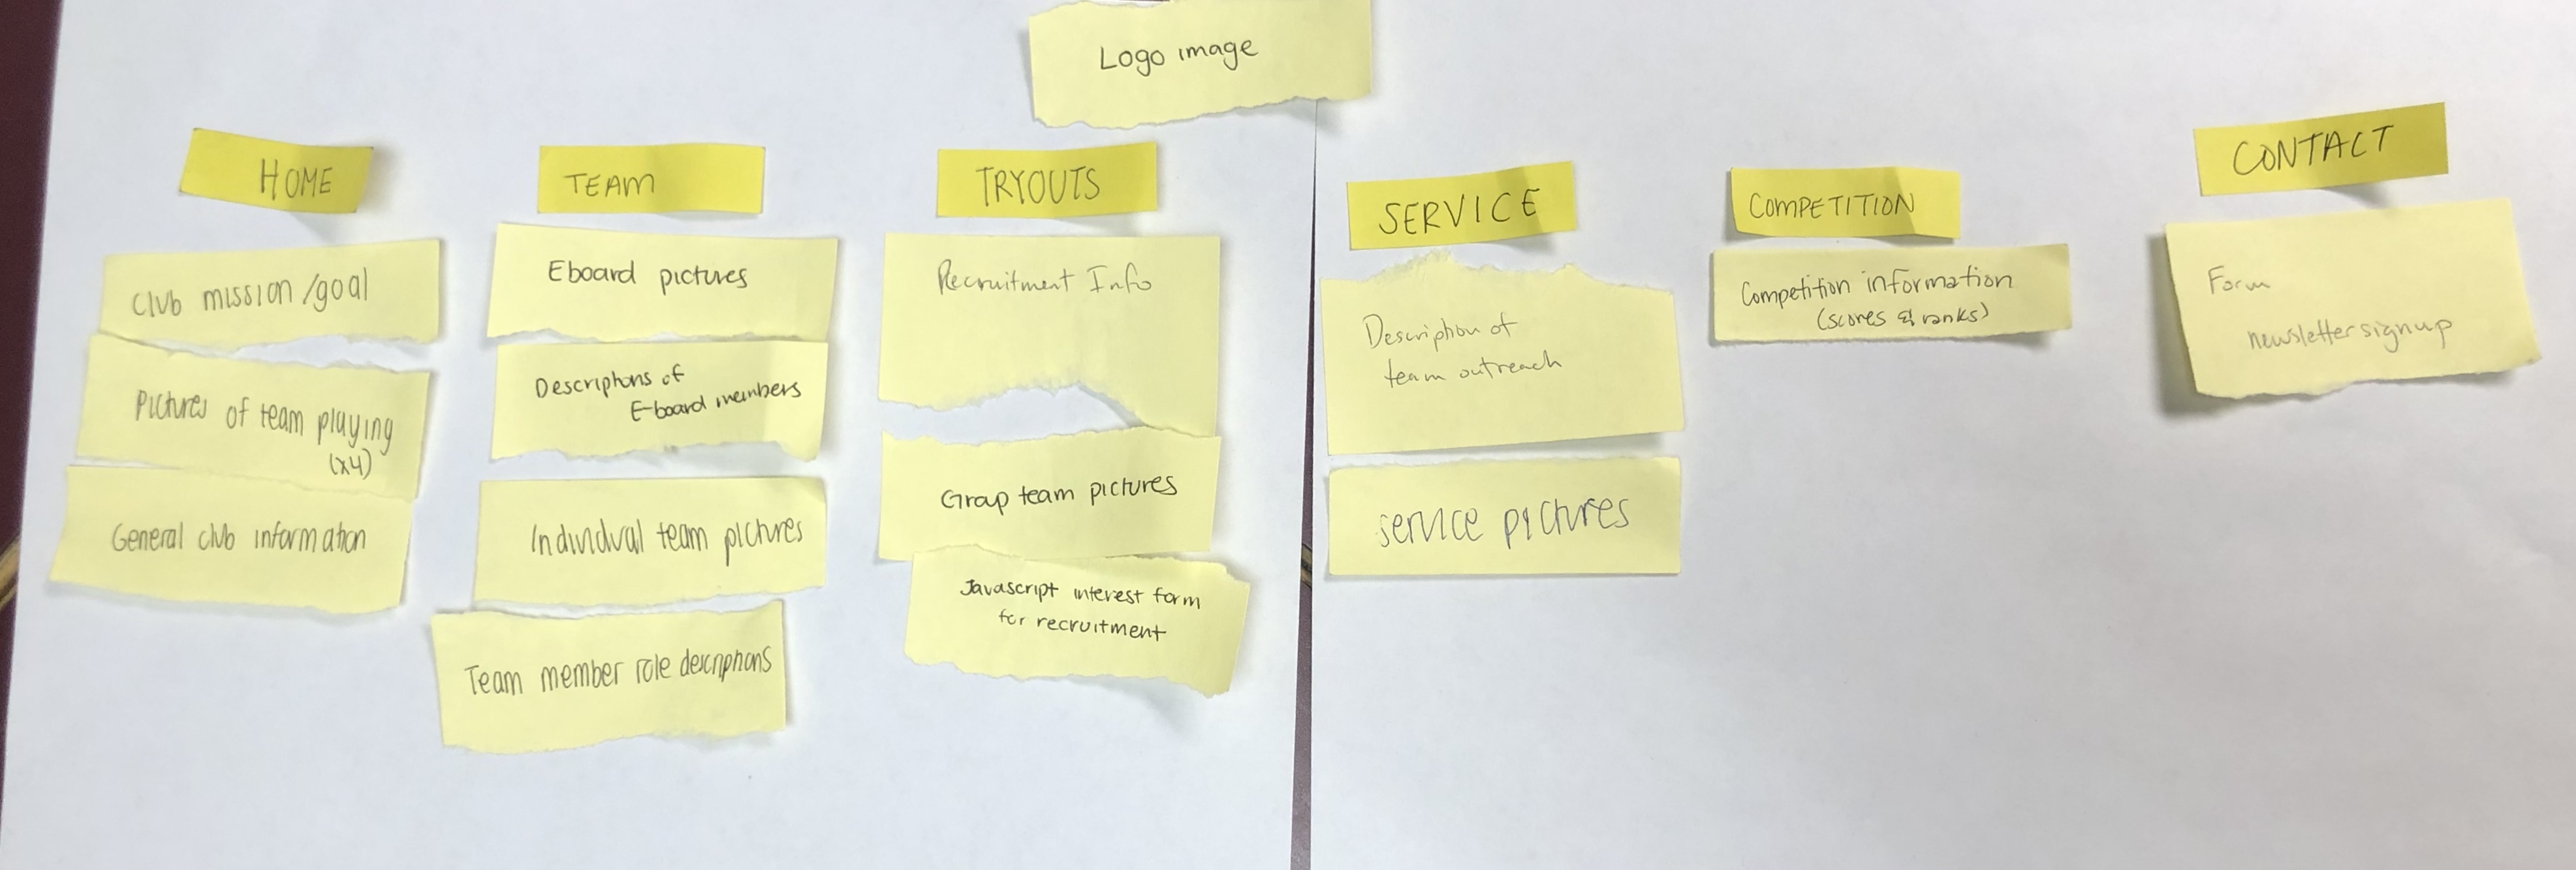 Logo image
HOME
Club mission/goal
Pictures of team playing
(x4)
General club information
TEAM
Eboard pictures
Descriptions of
E-board members
Individual team pictures
Team member role descriptions
TRYOUTS
Recruitment Info
Group team pictures
Javascript interest form
for recruitment
SERVICE
Description of
team outreach
service pictures
COMPETITION
Competition information
(scores & ranks)
CONTACT
Form
newsletter signup